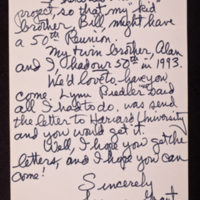 project so that my kid
brother Bill might have
a 50th Reunion.
My twin brother, Alan
and I, had our 50th in 1993.
We'd love to have you
come. Lynn Biedler said
all I had to do, was send
the letter to Harvard University
and you would get it.
Well, I hope you get the
letters, and I hope you can
come!
Sincerely